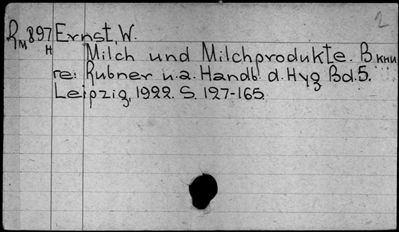 2
Rм 897 Ernst, W.
н Milch und Milchprodukte. В кни
ге: Rubner u.a. Handb. d. Hyg Bd. 5.
Leipzig, 1922. S. 127-165.